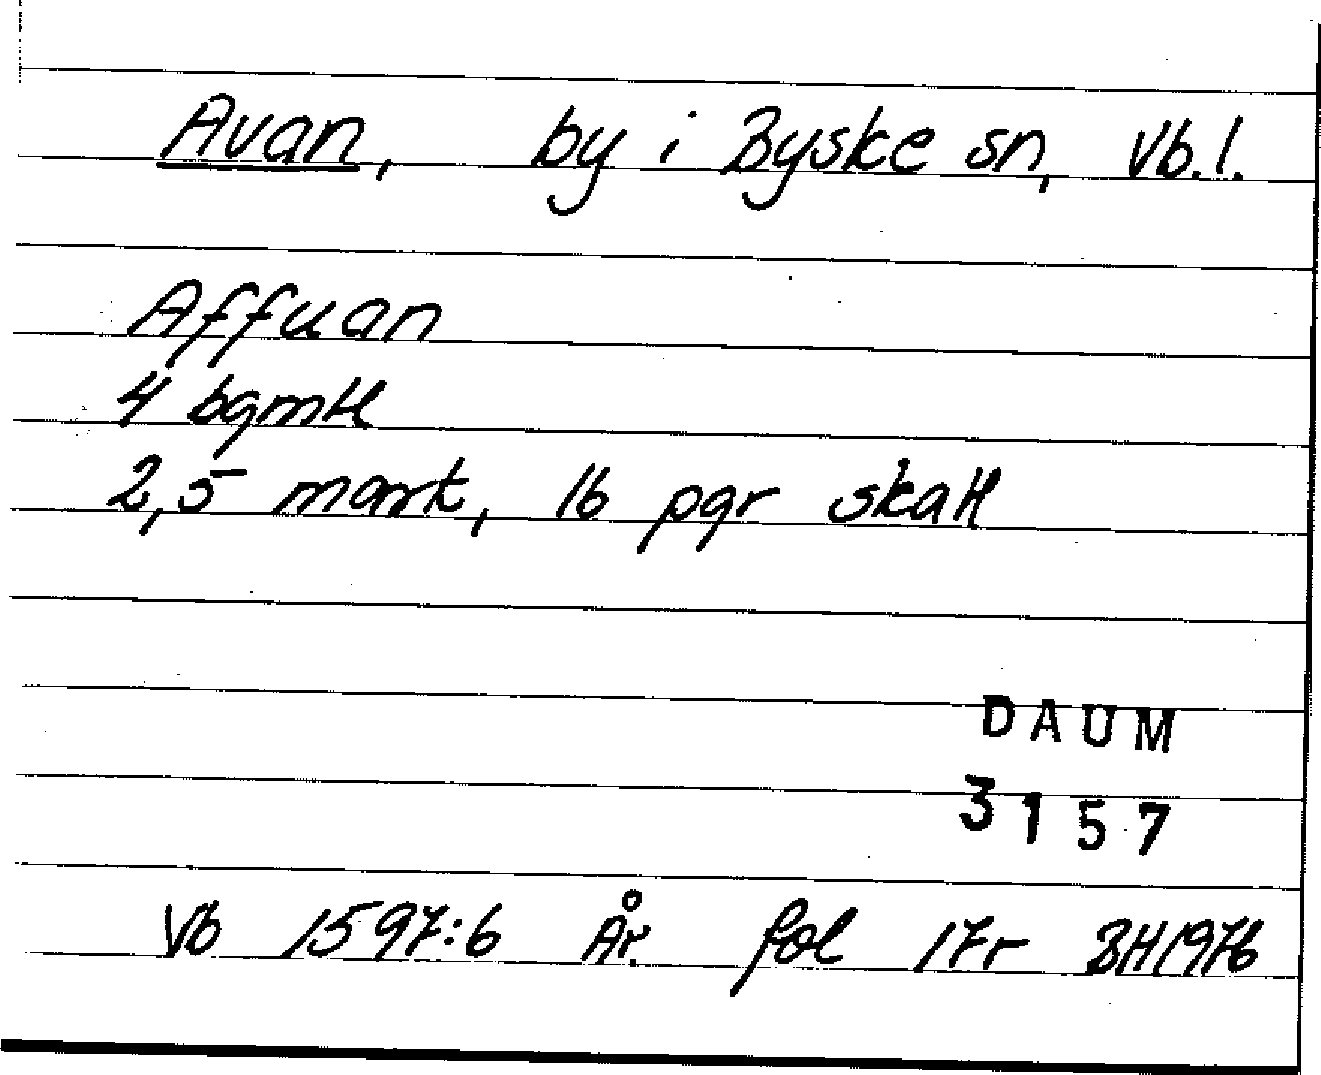 Avan, by i Byske sn, Vb.l.
Affuan
4 bgmtl
2,5 mark, 16 pgr skatt
DAUM
3157
Vb 1597:6 År. fol 17r BH1976